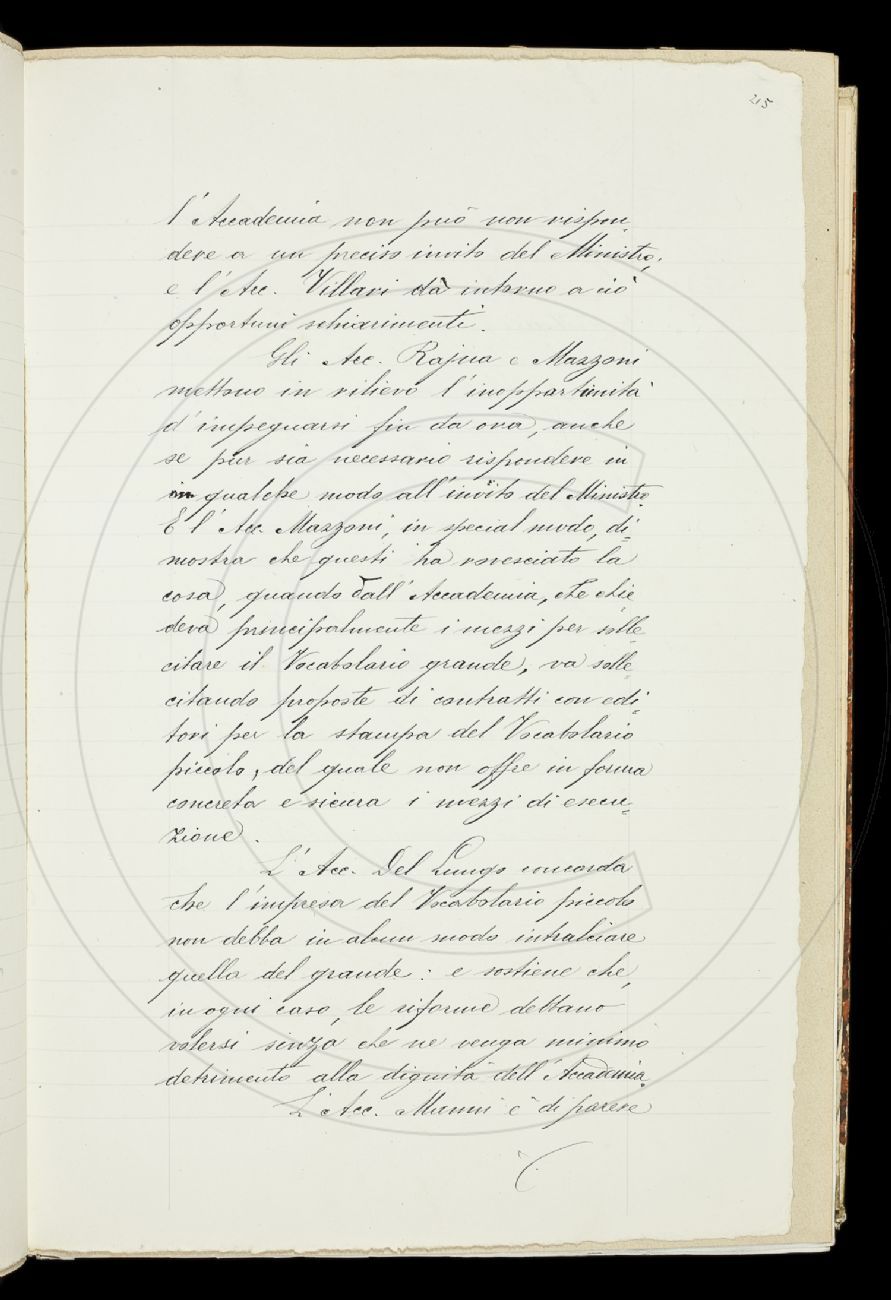 215
l'Accademia non può non rispon
dere a un preciso invito del Ministro;
e l'Acc. Villari dà intorno a ciò
opportuni schiarimenti.
Gli Acc. Rajna e Mazzoni
mettono in rilievo l'inopportunità
d'impegnarsi fin da ora, anche
se pur sia necessario rispondere in
in qualche modo all'invito del Ministro.
E l'Acc. Mazzoni, in special modo, di=
mostra che questi ha rovesciato la
cosa, quando dall'Accademia, che chie
deva principalmente i mezzi per solle=
citare il Vocabolario grande, va solle=
citando proposte di contratti con edi=
tori per la stampa del Vocabolario
piccolo, del quale non offre in forma
concreta e sicura i mezzi di esecu=
zione.
L'Acc. Del Lungo concorda
che l'impresa del Vocabolario piccolo
non debba in alcun modo intralciare
quella del grande: e sostiene che,
in ogni caso, le riforme debbano
volersi senza che ne venga minimo
detrimento alla dignità dell'Accademia.
L'Acc. Munni è di parere